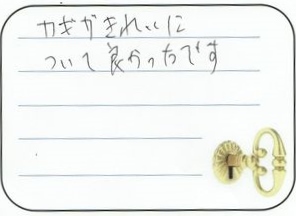 カギがきれいに
ついて良かったです